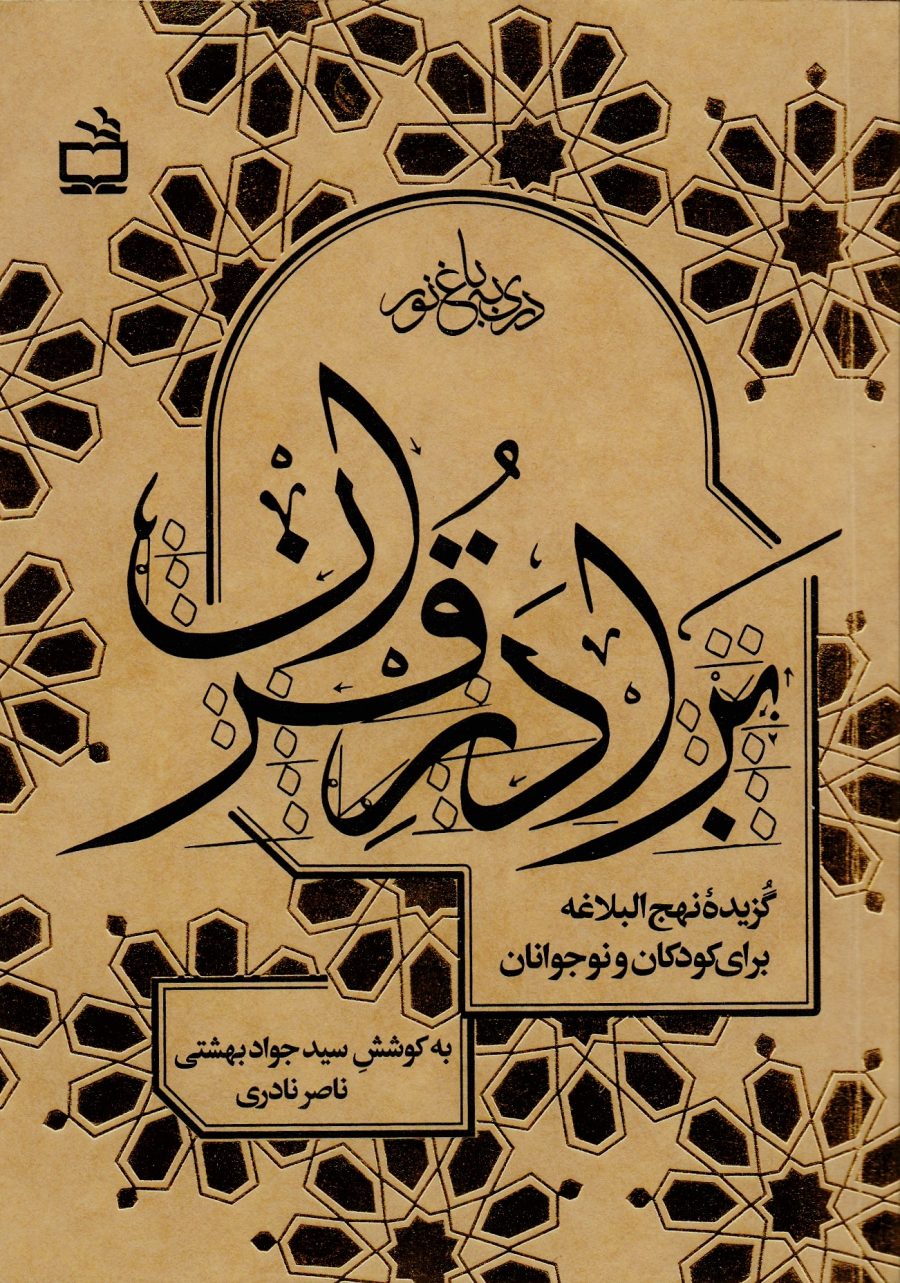 دری به باغ نور
برادر قرآن
گُزیدهٔ نهج البلاغه
برای کودکان و نوجوانان
به کوششِ سید جواد بهشتی
ناصر نادری